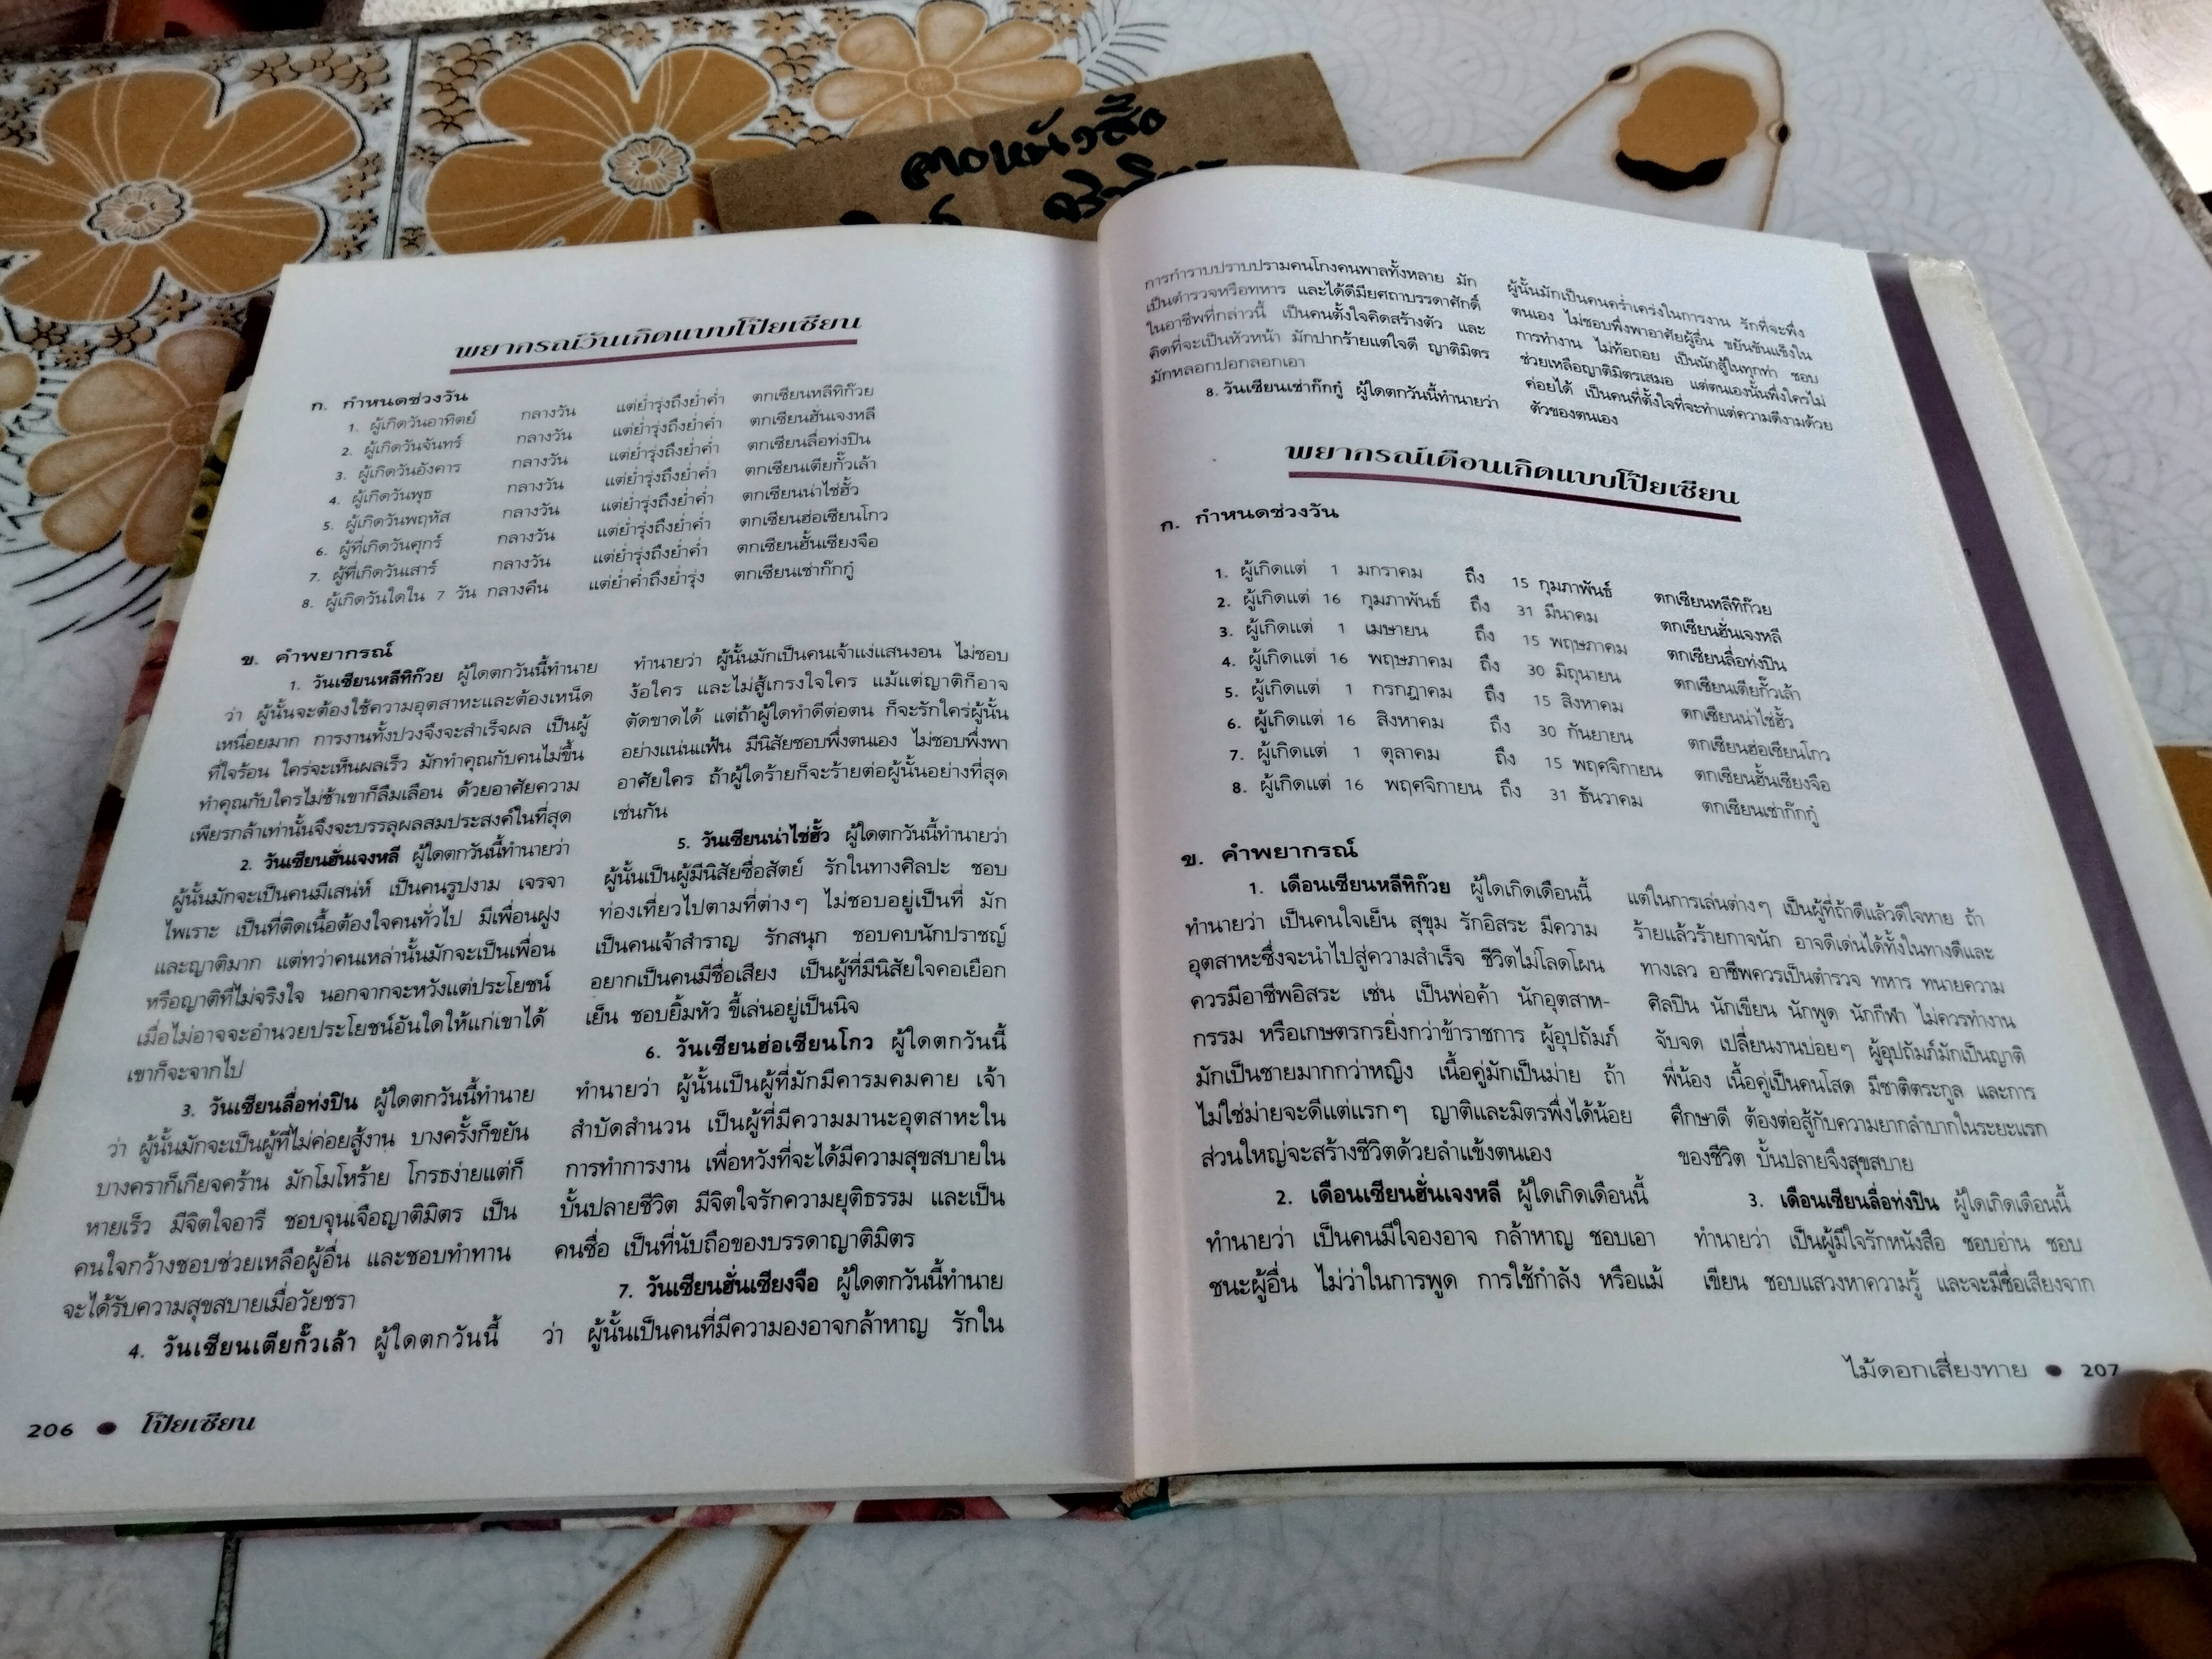 ลางหนังสือ
พยากรณ์วันเกิดแบบโป๊ยเซียน
ก. กำหนดช่วงวัน
1. ผู้เกิดวันอาทิตย์ กลางวัน แต่ย่ำรุ่งถึงย่ำค่ำ ตกเซียนหลีทิก๊วย
2. ผู้เกิดวันจันทร์ กลางวัน แต่ย่ำรุ่งถึงย่ำค่ำ ตกเซียนฮั่นเจงหลี
3. ผู้เกิดวันอังคาร กลางวัน แต่ย่ำรุ่งถึงย่ำค่ำ ตกเซียนลื่อท่งปิน
4. ผู้เกิดวันพุธ กลางวัน แต่ย่ำรุ่งถึงย่ำค่ำ ตกเซียนเตียกั๊วเล้า
5. ผู้เกิดวันพฤหัส กลางวัน แต่ย่ำรุ่งถึงย่ำค่ำ ตกเซียนน่าไช่ฮั้ว
6. ผู้ที่เกิดวันศุกร์ กลางวัน แต่ย่ำรุ่งถึงย่ำค่ำ ตกเซียนฮ่อเซียนโกว
7. ผู้ที่เกิดวันเสาร์ กลางวัน แต่ย่ำรุ่งถึงย่ำค่ำ ตกเซียนฮั้นเซียงจือ
8. ผู้เกิดวันใดใน 7 วัน กลางคืน แต่ย่ำค่ำถึงย่ำรุ่ง ตกเซียนเช่าก๊กกู๋
ข. คำพยากรณ์
1. วันเซียนหลีทิก๊วย ผู้ใดตกวันนี้ทำนาย
ว่า ผู้นั้นจะต้องใช้ความอุตสาหะและต้องเหน็ด
เหนื่อยมาก การงานทั้งปวงจึงจะสำเร็จผล เป็นผู้
ที่ใจร้อน ใคร่จะเห็นผลเร็ว มักทำคุณกับคนไม่ขึ้น
ทำคุณกับใครไม่ช้าเขาก็ลืมเลือน ด้วยอาศัยความ
เพียรกล้าเท่านั้นจึงจะบรรลุผลสมประสงค์ในที่สุด
2. วันเซียนฮั่นเจงหลี ผู้ใดตกวันนี้ทำนายว่า
ผู้นั้นมักจะเป็นคนมีเสน่ห์ เป็นคนรูปงาม เจรจา
ไพเราะ เป็นที่ติดเนื้อต้องใจคนทั่วไป มีเพื่อนฝูง
และญาติมาก แต่ทว่าคนเหล่านั้นมักจะเป็นเพื่อน
หรือญาติที่ไม่จริงใจ นอกจากจะหวังแต่ประโยชน์
เมื่อไม่อาจจะอำนวยประโยชน์อันใดให้แก่เขาได้
เขาก็จะจากไป
3. วันเซียนลื่อท่งปิน ผู้ใดตกวันนี้ทำนาย
ว่า ผู้นั้นมักจะเป็นผู้ที่ไม่ค่อยสู้งาน บางครั้งก็ขยัน
บางคราก็เกียจคร้าน มักโมโหร้าย โกรธง่ายแต่ก็
หายเร็ว มีจิตใจอารี ชอบจุนเจือญาติมิตร เป็น
คนใจกว้างชอบช่วยเหลือผู้อื่น และชอบทำทาน
จะได้รับความสุขสบายเมื่อวัยชรา
4. วันเซียนเตียกั๊วเล้า ผู้ใดตกวันนี้
ทำนายว่า ผู้นั้นมักเป็นคนเจ้าแง่แสนงอน ไม่ชอบ
ง้อใคร และไม่สู้เกรงใจใคร แม้แต่ญาติก็อาจ
ตัดขาดได้ แต่ถ้าผู้ใดทำดีต่อตน ก็จะรักใคร่ผู้นั้น
อย่างแน่นแฟ้น มีนิสัยชอบพึ่งตนเอง ไม่ชอบพึ่งพา
อาศัยใคร ถ้าผู้ใดร้ายก็จะร้ายต่อผู้นั้นอย่างที่สุด
เช่นกัน
5. วันเซียนน่าไช่ฮั้ว ผู้ใดตกวันนี้ทำนายว่า
ผู้นั้นเป็นผู้มีนิสัยซื่อสัตย์ รักในทางศิลปะ ชอบ
ท่องเที่ยวไปตามที่ต่างๆ ไม่ชอบอยู่เป็นที่ มัก
เป็นคนเจ้าสำราญ รักสนุก ชอบคบนักปราชญ์
อยากเป็นคนมีชื่อเสียง เป็นผู้ที่มีนิสัยใจคอเยือก
เย็น ชอบยิ้มหัว ขี้เล่นอยู่เป็นนิจ
6. วันเซียนฮ่อเซียนโกว ผู้ใดตกวันนี้
ทำนายว่า ผู้นั้นเป็นผู้ที่มักมีคารมคมคาย เจ้า
สำบัดสำนวน เป็นผู้ที่มีความมานะอุตสาหะใน
การทำการงาน เพื่อหวังที่จะได้มีความสุขสบายใน
บั้นปลายชีวิต มีจิตใจรักความยุติธรรม และเป็น
คนซื่อ เป็นที่นับถือของบรรดาญาติมิตร
7. วันเซียนฮั่นเซียงจือ ผู้ใดตกวันนี้ทำนาย
ว่า ผู้นั้นเป็นคนที่มีความองอาจกล้าหาญ รักใน
206 ● โป๊ยเซียน
การกำราบปราบปรามคนโกงคนพาลทั้งหลาย มัก
เป็นตำรวจหรือทหาร และได้ดีมียศถาบรรดาศักดิ์
ในอาชีพที่กล่าวนี้ เป็นคนตั้งใจคิดสร้างตัว และ
คิดที่จะเป็นหัวหน้า มักปากร้ายแต่ใจดี ญาติมิตร
มักหลอกปอกลอกเอา
8. วันเซียนเช่าก๊กกู๋ ผู้ใดตกวันนี้ทำนายว่า
ผู้นั้นมักเป็นคนคร่ำเคร่งในการงาน รักที่จะพึ่ง
ตนเอง ไม่ชอบพึ่งพาอาศัยผู้อื่น ขยันขันแข็งใน
การทำงาน ไม่ท้อถอย เป็นนักสู้ในทุกท่า ชอบ
ช่วยเหลือญาติมิตรเสมอ แต่ตนเองนั้นพึ่งใครไม่
ค่อยได้ เป็นคนที่ตั้งใจที่จะทำแต่ความดีงามด้วย
ตัวของตนเอง
พยากรณ์เดือนเกิดแบบโป๊ยเซียน
ก. กำหนดช่วงวัน
1. ผู้เกิดแต่ 1 มกราคม ถึง 15 กุมภาพันธ์ ตกเซียนหลีทิก๊วย
2. ผู้เกิดแต่ 16 กุมภาพันธ์ ถึง 31 มีนาคม ตกเซียนฮั่นเจงหลี
3. ผู้เกิดแต่ 1 เมษายน ถึง 15 พฤษภาคม ตกเซียนลื่อท่งปิน
4. ผู้เกิดแต่ 16 พฤษภาคม ถึง 30 มิถุนายน ตกเซียนเตียกั๊วเล้า
5. ผู้เกิดแต่ 1 กรกฎาคม ถึง 15 สิงหาคม ตกเซียนน่าไช่ฮั้ว
6. ผู้เกิดแต่ 16 สิงหาคม ถึง 30 กันยายน ตกเซียนฮ่อเซียนโกว
7. ผู้เกิดแต่ 1 ตุลาคม ถึง 15 พฤศจิกายน ตกเซียนฮั้นเซียงจือ
8. ผู้เกิดแต่ 16 พฤศจิกายน ถึง 31 ธันวาคม ตกเซียนเช่าก๊กกู๋
ข. คำพยากรณ์
1. เดือนเซียนหลีทิก๊วย ผู้ใดเกิดเดือนนี้
ทำนายว่า เป็นคนใจเย็น สุขุม รักอิสระ มีความ
อุตสาหะซึ่งจะนำไปสู่ความสำเร็จ ชีวิตไม่โลดโผน
ควรมีอาชีพอิสระ เช่น เป็นพ่อค้า นักอุตสาห-
กรรม หรือเกษตรกรยิ่งกว่าข้าราชการ ผู้อุปถัมภ์
มักเป็นชายมากกว่าหญิง เนื้อคู่มักเป็นม่าย ถ้า
ไม่ใช่ม่ายจะดีแต่แรกๆ ญาติและมิตรพึ่งได้น้อย
ส่วนใหญ่จะสร้างชีวิตด้วยลำแข้งตนเอง
2. เดือนเซียนฮั่นเจงหลี ผู้ใดเกิดเดือนนี้
ทำนายว่า เป็นคนมีใจองอาจ กล้าหาญ ชอบเอา
ชนะผู้อื่น ไม่ว่าในการพูด การใช้กำลัง หรือแม้
แต่ในการเล่นต่างๆ เป็นผู้ที่ถ้าดีแล้วดีใจหาย ถ้า
ร้ายแล้วร้ายกาจนัก อาจดีเด่นได้ทั้งในทางดีและ
ทางเลว อาชีพควรเป็นตำรวจ ทหาร ทนายความ
ศิลปิน นักเขียน นักพูด นักกีฬา ไม่ควรทำงาน
จับจด เปลี่ยนงานบ่อยๆ ผู้อุปถัมภ์มักเป็นญาติ
พี่น้อง เนื้อคู่เป็นคนโสด มีชาติตระกูล และการ
ศึกษาดี ต้องต่อสู้กับความยากลำบากในระยะแรก
ของชีวิต บั้นปลายจึงสุขสบาย
3. เดือนเซียนลื่อท่งปิน ผู้ใดเกิดเดือนนี้
ทำนายว่า เป็นผู้มีใจรักหนังสือ ชอบอ่าน ชอบ
เขียน ชอบแสวงหาความรู้ และจะมีชื่อเสียงจาก
ไม้ดอกเสี่ยงทาย ● 207